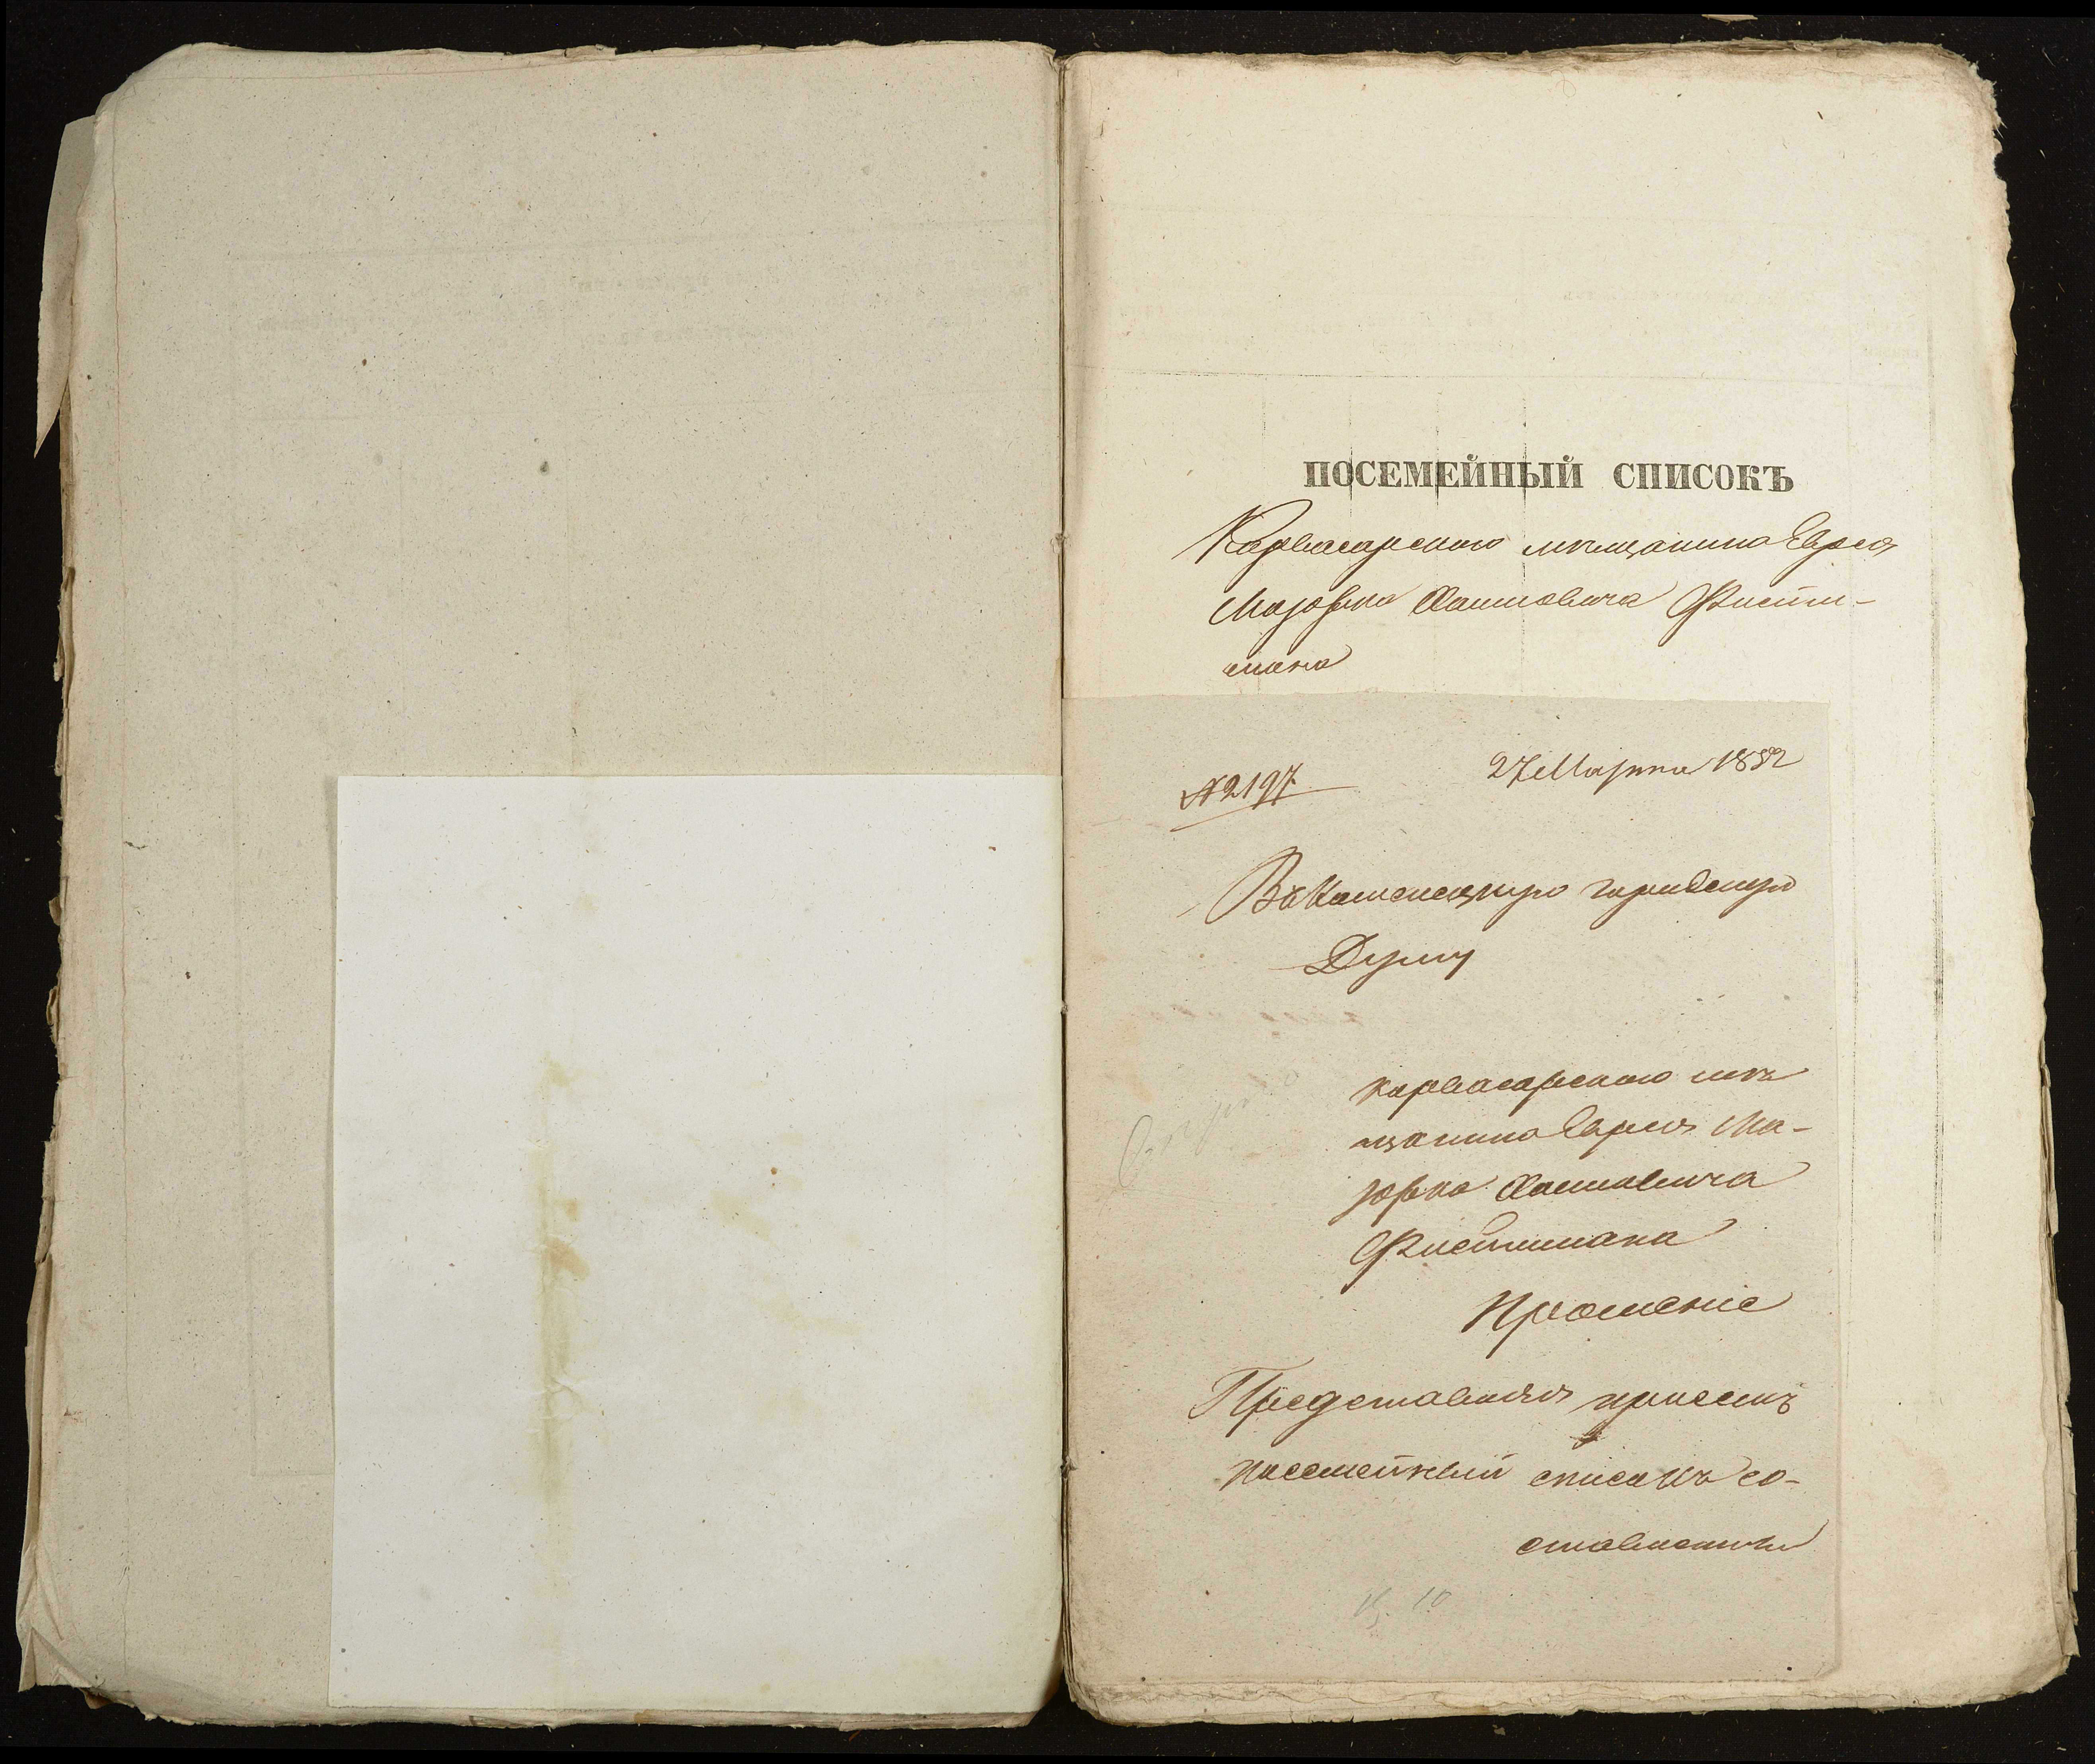 ПОСЕМЕЙНЫЙ СПИСОКЪ
Карвасарскаго мѣщанина Еврея
Мазорка Хаимовича Фисти-
мана
№2197
27 Марта 1882
Въ Каменецкую городскую
Думу
Карвасарскаго мѣ
щанина Еврея Ма-
зорка Хаимовича
Фистимана
Прошеніе
Представляя присемъ
посемейный списокъ со-
10